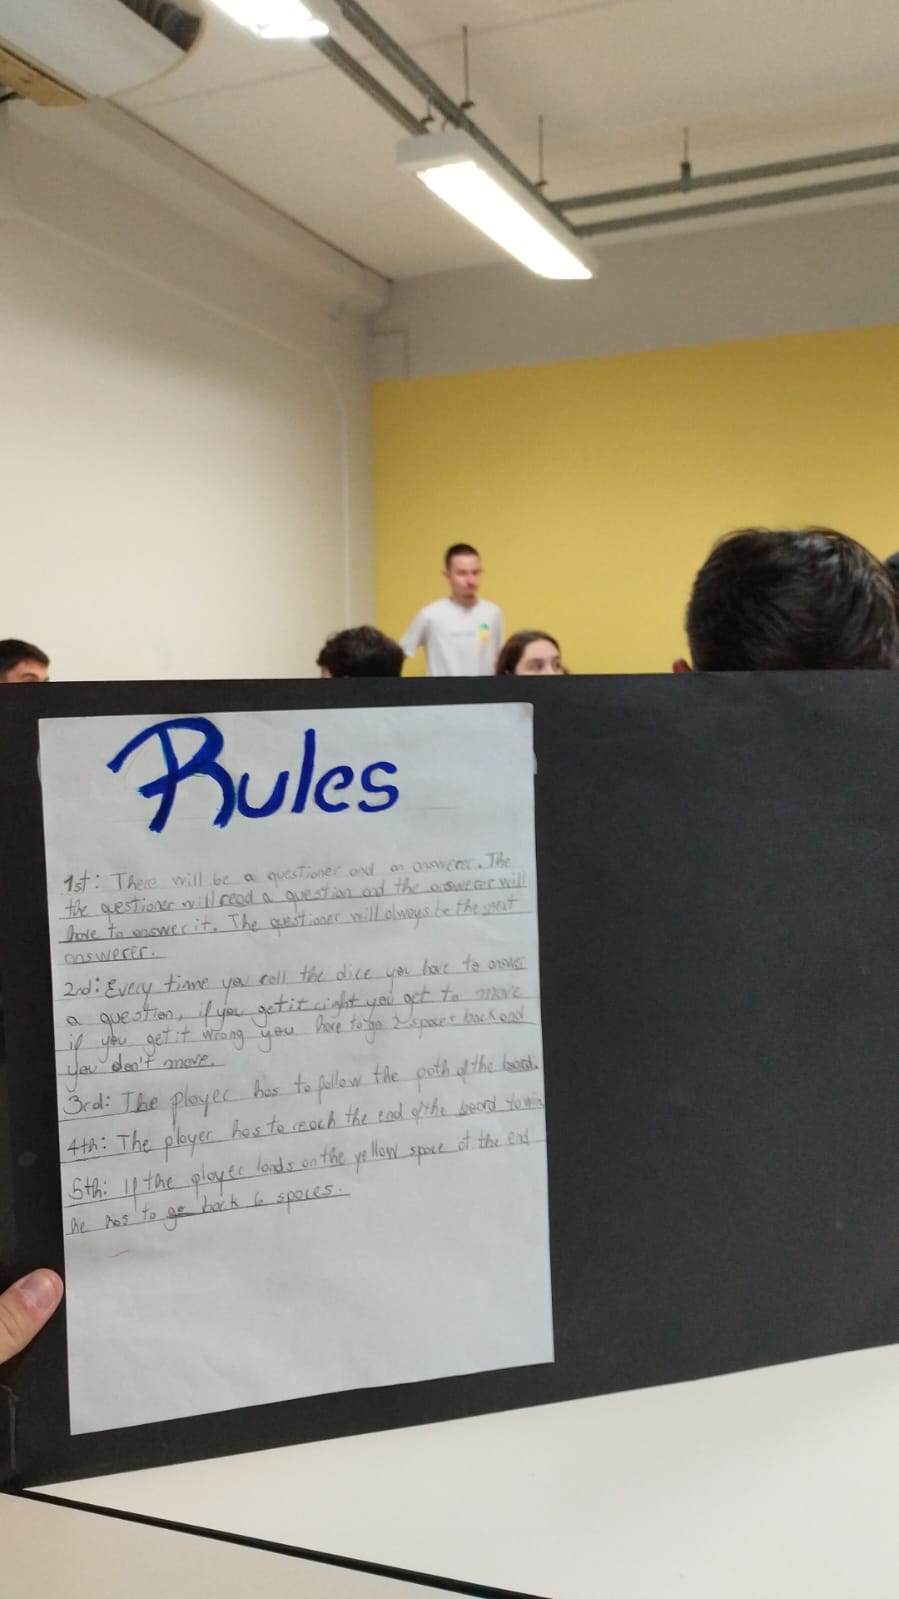 Rules
1st: There will be a questioner and an answerer. The
the questioner will read a question and the answerer will
have to answer it. The questioner will always be the next
answerer.
2nd: Every time you roll the dice you have to answer
a question, if you get it right you get to move
if you get it wrong you have to go 2 spaces back and
you don't move.
3rd: The player has to follow the path of the board.
4th: The player has to reach the end of the board to win
5th: If the player lands on the yellow space at the end
he has to go back 6 spaces.